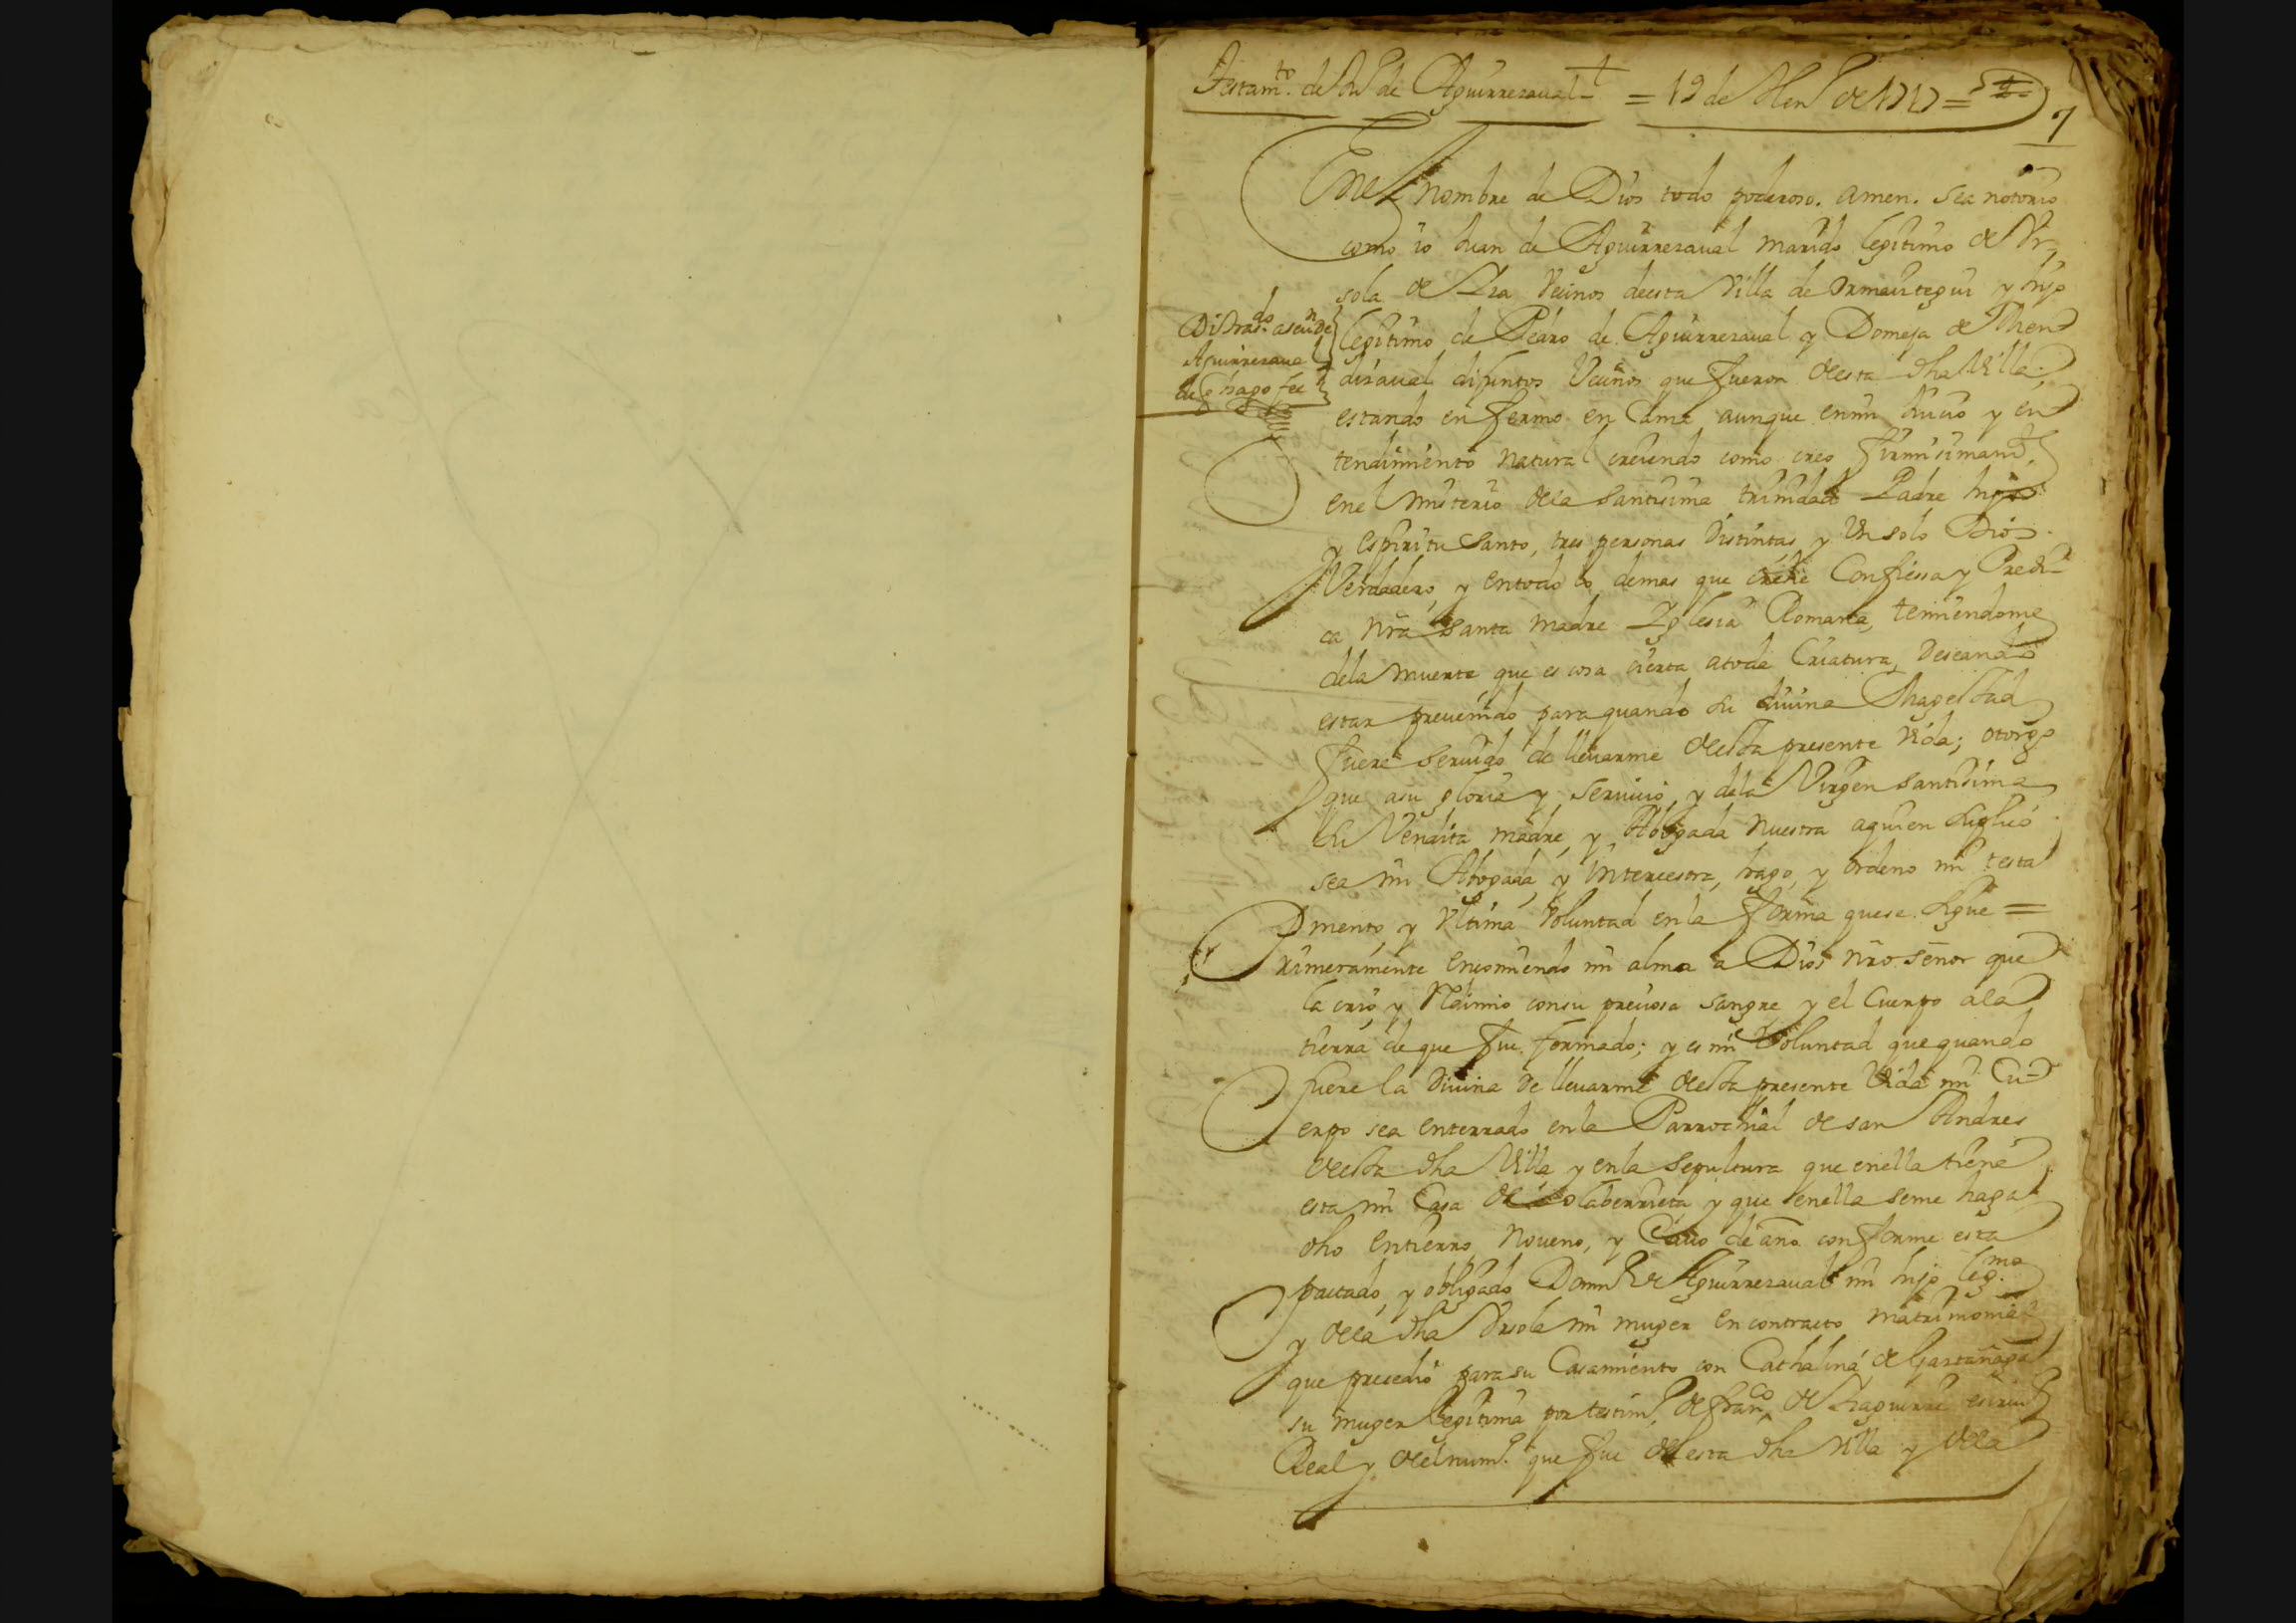 Testamto de Ju de Aguirrezaual = 19 de Henº de 1717 =
7
En el nombre de Dios todo poderoso. amen. sea notorio
como io Juan de Aguirrezaual marido legitimo de Vr
sola de Vecinos deesta Villa de Ormaiztegui y hijo
legitimo de Pedro de Aguirrezaual y Domeja de Men
dizaual difuntos Vecinos que fueron de esta dha Villa;
estando enfermo en Cama aunque en mi Juicio y en
tendimiento natural creiendo como creo firmisimamte
en el misterio de la santisima trinidad Padre hijo
y Espiritu Santo, tres personas distintas y Un solo Dios
Verdadero, y en todo lo demas que crehe Confiessa y Predi-
ca nra santa madre Yglesia Romana, temiendome
dela muerte que es cosa cierta atoda Criatura, Deseando
estar preuenido para quando su diuina Magestad
fuere seruido de lleuarme desta presente vida; otorgo
que asu gloria y seruicio, y dela Virgen santisima
su Vendita madre, y Abogada nuestra aquien suplico
sea mi Abogada, y Intercesora, hago, y ordeno mi testa
mento, y Vltima Voluntad en la forma que se sigue =
Primeramente Encomiendo mi alma a Dios nro señor que
la crio y Redimio con su preciosa sangre y el Cuerpo ala
tierra de que fue formado; y es mi Voluntad que quando
fuere la Diuina de lleuarme desta presente Vida mi Cu-
erpo sea enterrado en la Parrochial de san Andres
desta dha Villa, y en la sepultura que en ella tiene
esta mi Casa de Olaberrieta y que en ella se me haga
dho Entierro, Noueno, y Cauo de año conforme esta
pactado, y obligado Domingo de Aguirrezaual mi hijo legmo
y de la dha Vrsola mi muger en contracto matrimonial
que precedio para su Casamiento con Cathalina de Gartañaga
su muger legitima por testimº de franco de escriuº
Real y del numº que fue de esta dha Villa y dela
Aguirrezaual
hago fee